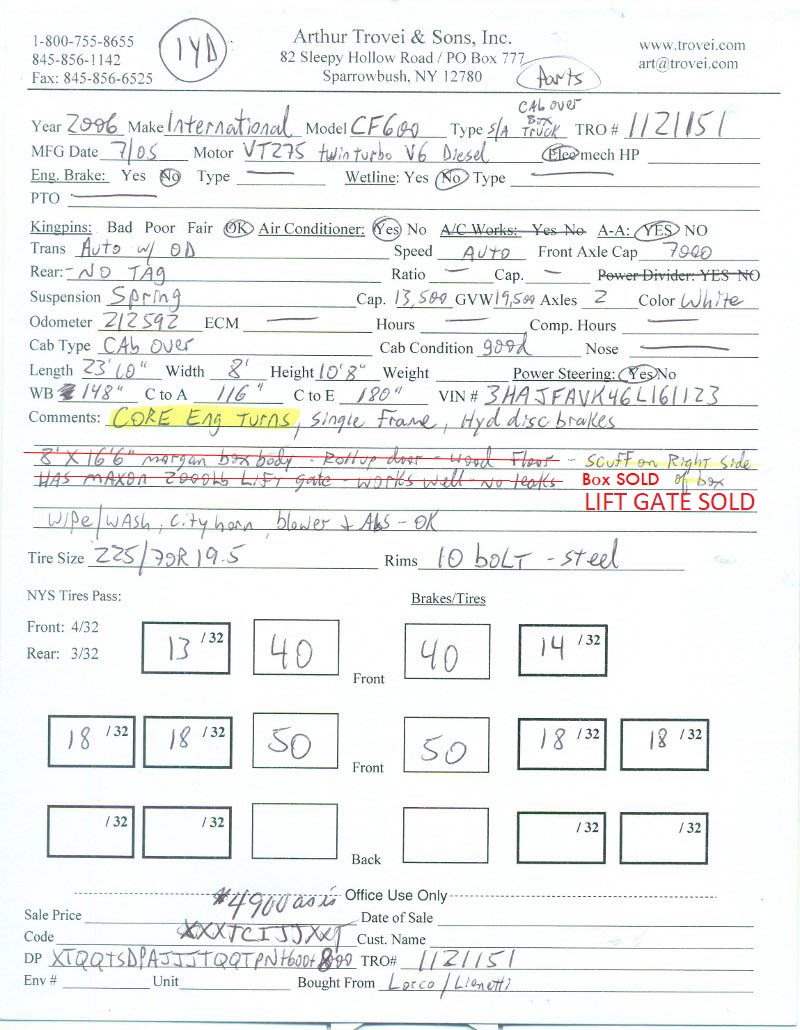 1-800-755-8655
845-856-1142
Fax: 845-856-6525
1YD
Arthur Trovei & Sons, Inc.
82 Sleepy Hollow Road / PO Box 777
Sparrowbush, NY 12780
Parts
www.trovei.com
art@trovei.com
Year 2006 Make International Model CF600 Type S/A CAb over Box TRUCK TRO # 1121151
MFG Date 7/05 Motor VT275 twin turbo V6 Diesel Elec mech HP
Eng. Brake: Yes No Type — Wetline: Yes No Type —
PTO —
Kingpins: Bad Poor Fair OK Air Conditioner: Yes No A/C Works: Yes No A-A: YES NO
Trans Auto w/ OD Speed AUTO Front Axle Cap 7000
Rear: - NO TAG Ratio — Cap. — Power Divider: YES NO
Suspension Spring Cap. 13,500 GVW 19,500 Axles 2 Color White
Odometer 212592 ECM — Hours — Comp. Hours —
Cab Type CAb over Cab Condition good Nose —
Length 23'10" Width 8' Height 10'8" Weight Power Steering: Yes No
WB 148" C to A 116" C to E 180" VIN # 3HAJFAVK46L161123
Comments: CORE Eng TURNS, Single Frame, Hyd disc brakes
8' X 16'6" morgan box body - Rollup door - wood Floor - scuff on Right side
HAS MAXON 2000Lb LiFt gate - works well - no leaks Box SOLD of box
LIFT GATE SOLD
Wipe/WAsh, City horn, blower + Abs - OK
Tire Size 225/70R19.5 Rims 10 bOLT - steel
NYS Tires Pass: Brakes/Tires
Front: 4/32
Rear: 3/32
13 /32 40 Front 40 14 /32
18 /32 18 /32 50 Front 50 18 /32 18 /32
/32 /32 Back /32 /32
Office Use Only
Sale Price $4900 as is Date of Sale
Code XXXTCIJJXXT Cust. Name
DP XTQQTSDPAJJJTQQTPN+600+800 TRO# 1121151
Env # Unit Bought From Lorco/Lianetti